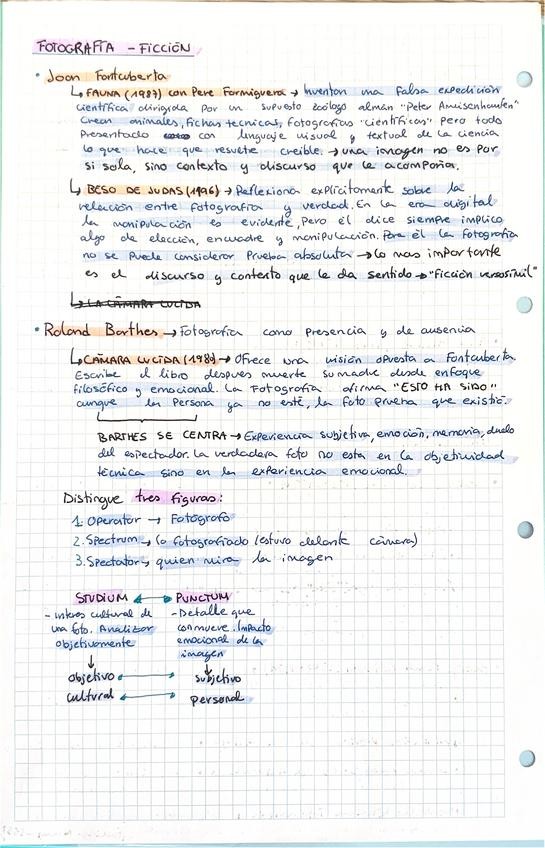 FOTOGRAFÍA - FICCIÓN
• Joan Fontcuberta
↳ FAUNA (1987) con Pere Formiguera → Inventan una falsa expedición
científica dirigida por un supuesto zoólogo alemán "Peter Ameisenhaufen"
Crean animales, fichas tecnicas, fotografias "científicas" pero todo
Presentado con lenguaje visual y textual de la ciencia
lo que hace que resulte creible. → una imagen no es por
si sola, sino contexto y discurso que le acompaña.
↳ BESO DE JUDAS (1996) → Reflexiona explicitamente sobre la
relación entre fotografia y verdad. En la era digital
la manipulación es evidente, pero él dice siempre implico
algo de elección, encuadre y manipulación. Para él la fotografía
no se puede considerar Prueba absoluta → lo mas importante
es el discurso y contexto que le da sentido → "Ficción verosímil"
↳ LA CÁMARA LUCIDA
• Roland Barthes → Fotografia como presencia y de ausencia
↳ CÁMARA LUCIDA (1980) → Ofrece una visión opuesta a Fontcuberta.
Escribe el libro despues muerte su madre desde enfoque
filosófico y emocional. La Fotografía afirma "ESTO HA SIDO"
aunque la Persona ya no esté, la foto prueba que existió.
BARTHES SE CENTRA → Experiencia subjetiva, emoción, memoria, duelo
del espectador. La verdadera foto no esta en la objetividad
técnica sino en la experiencia emocional.
Distingue tres figuras:
1. Operator → Fotógrafo
2. Spectrum → lo fotografiado (estuvo delante cámara)
3. Spectator → quien mira la imagen
STUDIUM ↔ PUNCTUM
- Interes cultural de una foto. Analizar objetivamente
- Detalle que conmueve. Impacto emocional de la imagen
↓ ↓
objetivo ↔ subjetivo
cultural ↔ personal